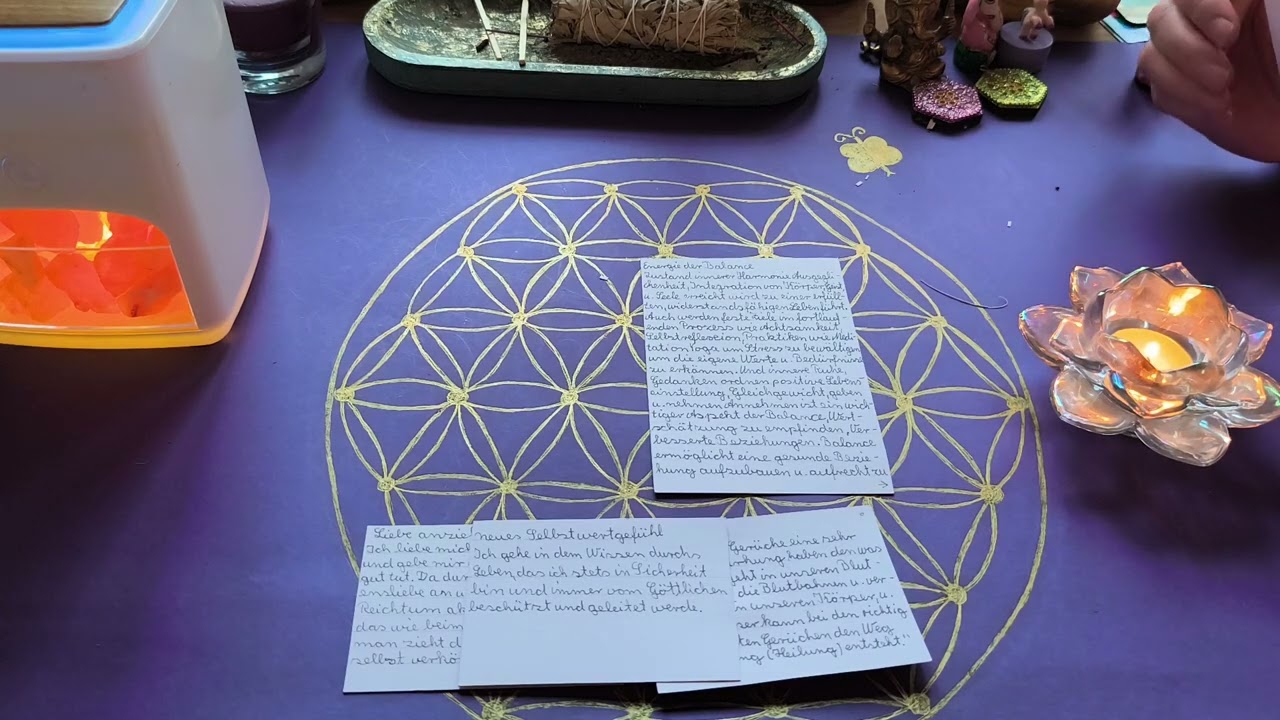 Energie der Balance
Zustand innerer Harmonie Ausgegli
chenheit, Integration von Körper, Geist
u. Seele erreicht wird zu einer erfüll-
Auch werden feste Ziele im fortlauf
enden Prozess wie Achtsamkeit
Selbstreflexion, Praktiken wie Medi
tation Yoga um Stress zu bewältigen
um die eigene Werte u. Bedürfnisse
zu erkännen. Und innere Ruhe,
Gedanken ordnen positive Lebens
einstellung, Gleichgewicht, geben
u. nehmen Annehmen ist ein wich
tiger Aspekt der Balance, Wert-
schätzung zu empfinden, Ver-
besserte Beziehungen. Balance
ermöglicht eine gesunde Bezie-
hung aufzubauen u. aufrecht zu
Liebe anzie
Ich liebe mich
und gebe mir
gut tut. Da dur
ensliebe an u
Reichtum ab
das wie beim
man zieht d
selbst verkö
neues Selbstwertgefühl
Ich gehe in dem Wissen durchs
Leben, das ich stets in Sicherheit
bin und immer vom Göttlichen
beschützt und geleitet werde.
Gerüche eine sehr
irkung haben den was
geht in unseren Blut-
die Blutbahnen u. ver-
n unseren Körper, u.
ser kann bei den richtig
ten Gerüchen den Weg
ng (Heilung) entsteht."